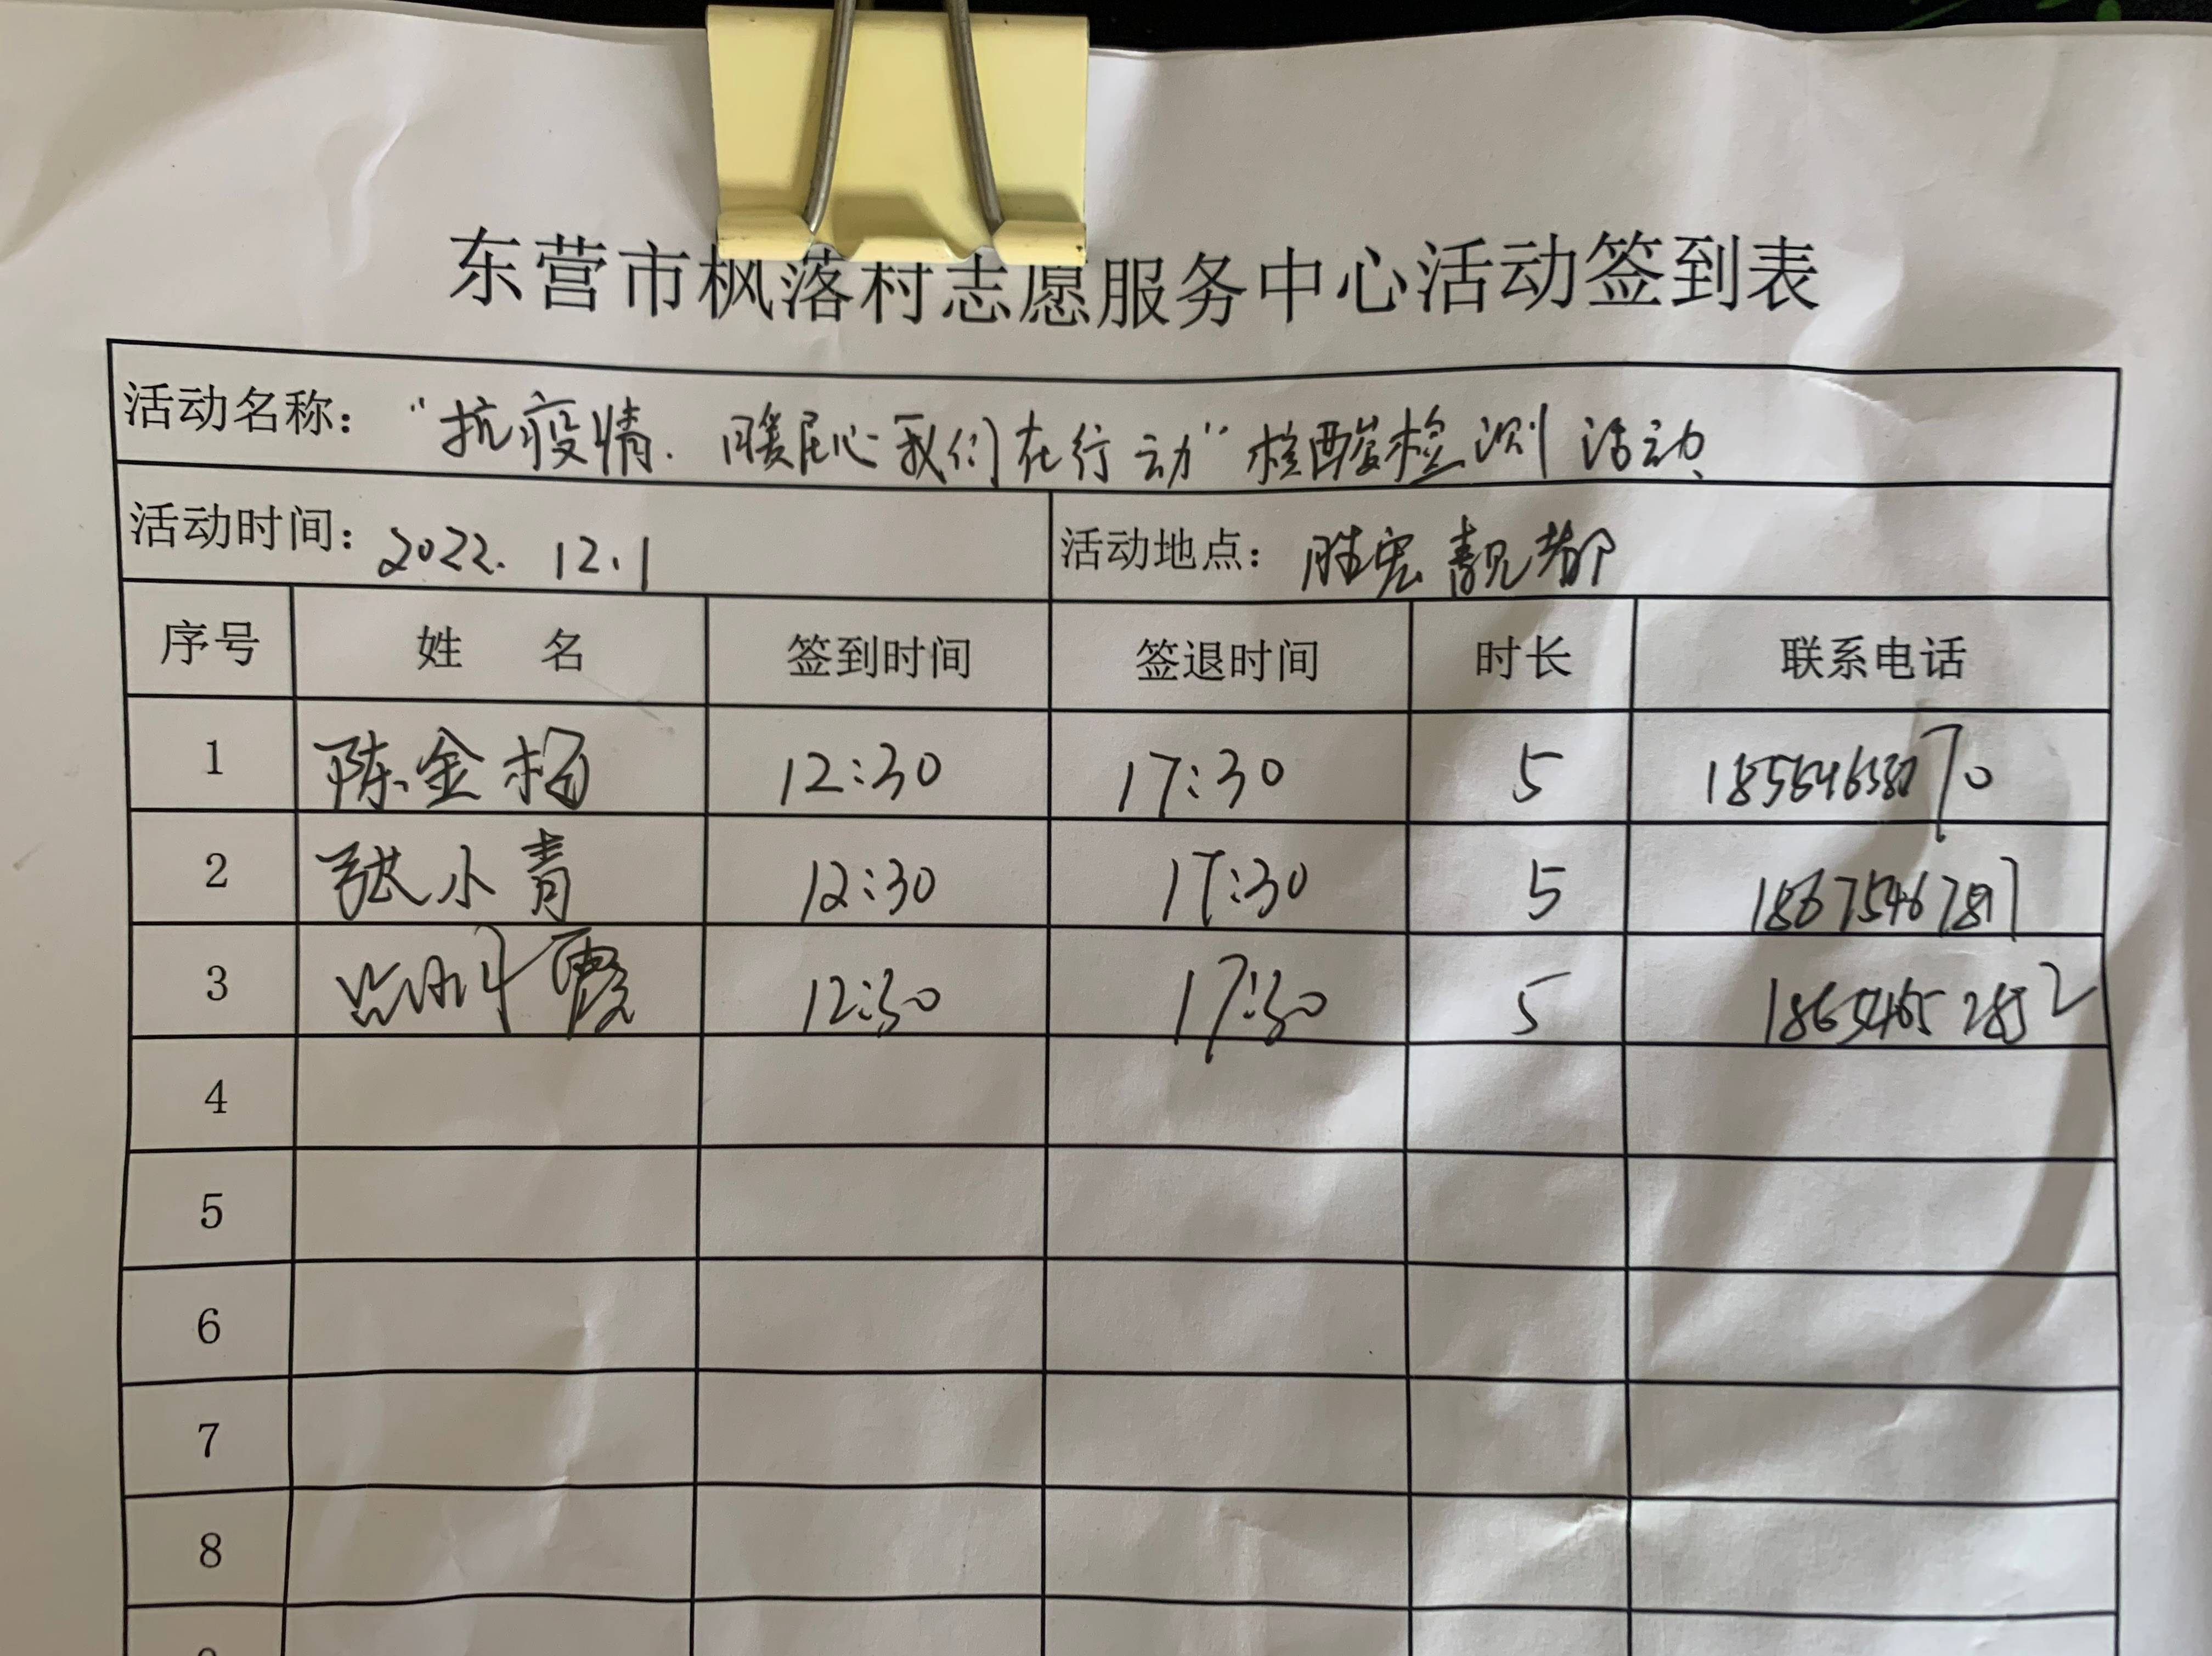 东营市枫落村志愿服务中心活动签到表
活动名称： “抗疫情.暖民心我们在行动”核酸检测活动
活动时间：2022.12.1 活动地点：胜宏靓都
序号 姓名 签到时间 签退时间 时长 联系电话
1 陈金杨 12:30 17:30 5
2 张小青 12:30 17:30 5
3 霞 12:30 17:30 5
4
5
6
7
8